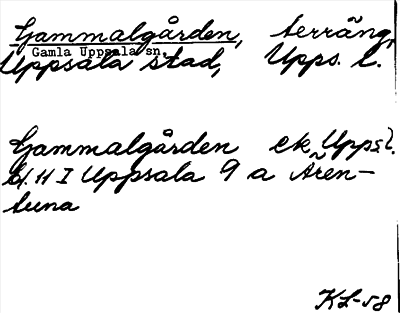 Gammalgården, terräng,
Gamla Uppsala sn,
Uppsala stad, Upps. l.
Gammalgården ek, Upps. l.
bl. 11 I Uppsala 9 a Ären-
tuna
KL-58